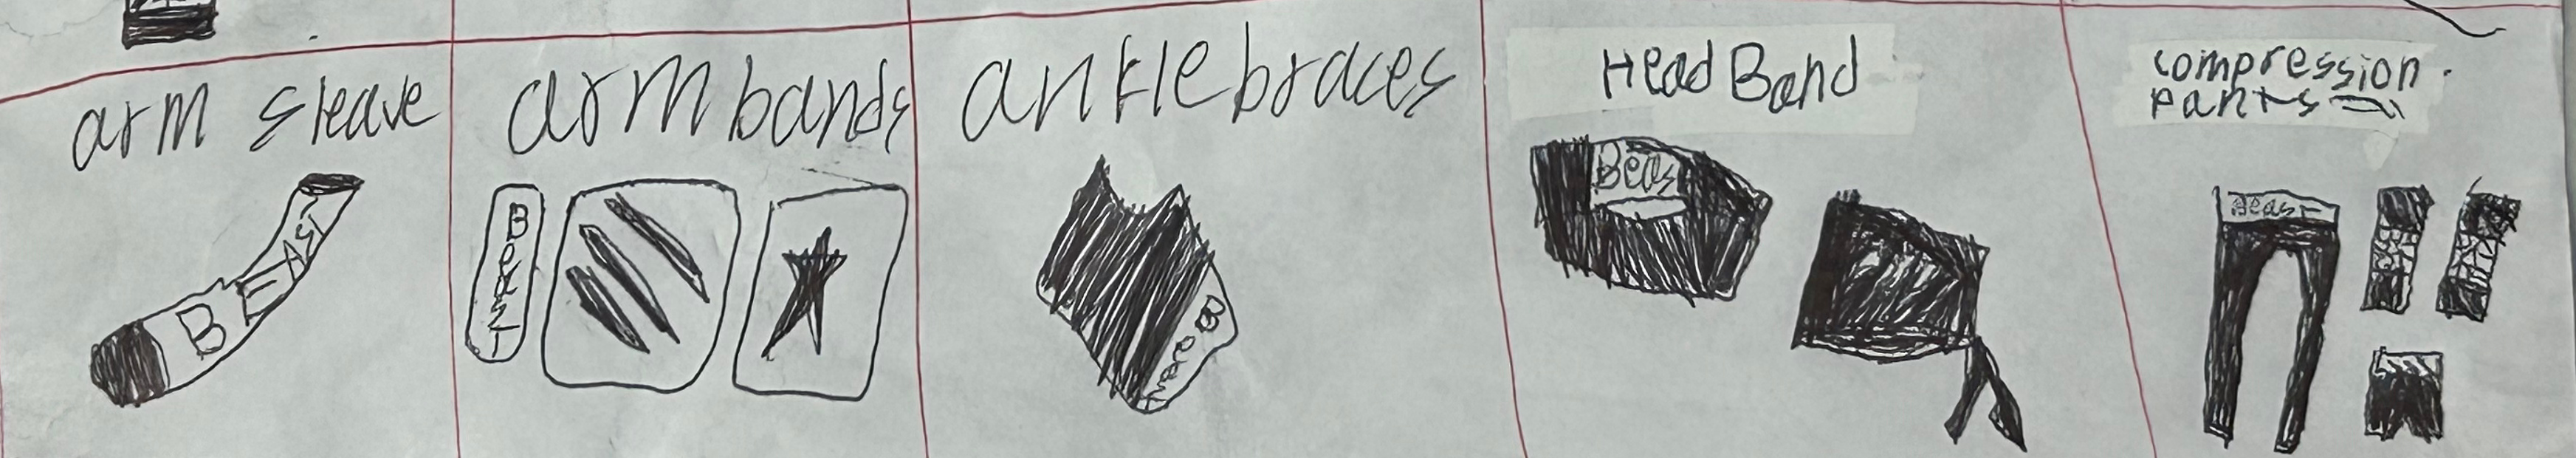 arm sleave
BEAST
arm bands
Beast
ankle braces
Head Band
Beas
compression
pants
Beast